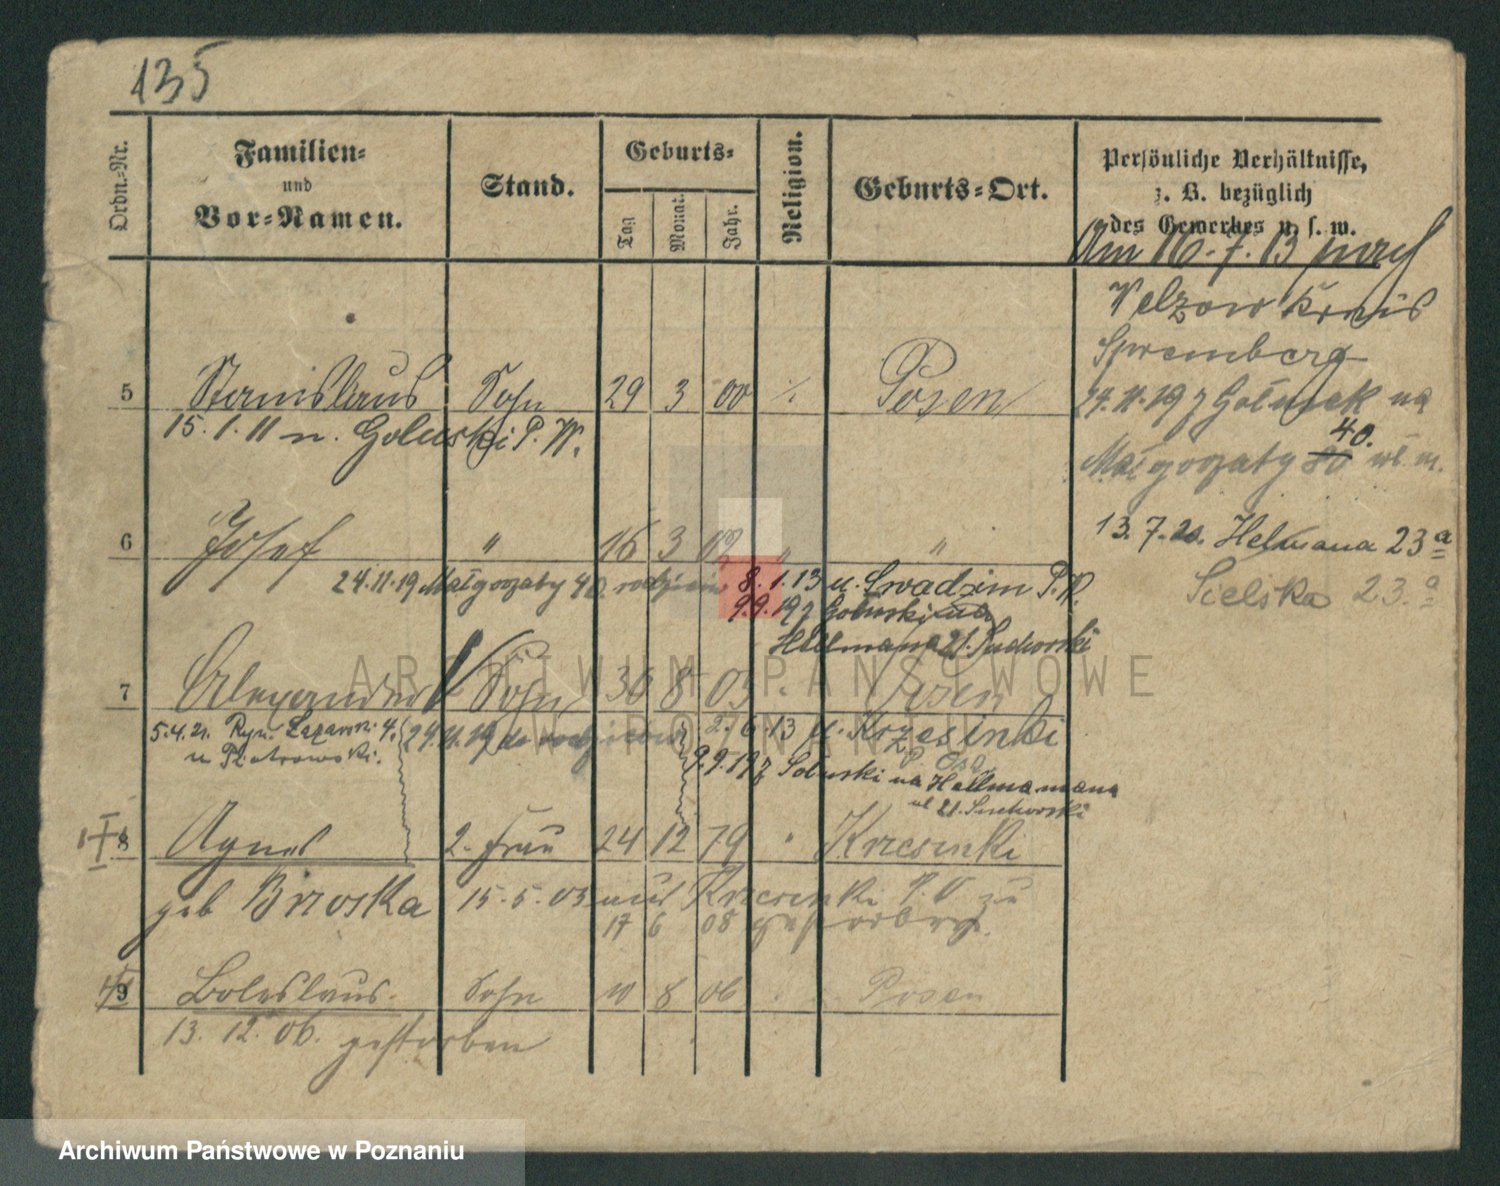 135
Ordn.-Nr.
Familien-
und
Vor-Namen.
Stand.
Geburts-
Tag
Monat.
Jahr.
Religion.
Geburts-Ort.
Persönliche Verhältnisse,
z. B. bezüglich
des Gewerbes u. s. w.
Am 16.7.13 nach
Welzow Kreis
Spremberg
5 Stanislaus Sohn 29 3 00 ./. Posen
24.11.19 z na
15.1.11 n. Goluski P. W.
40.
Małgorzaty 80 m.
6 Josef " 16 3 02 " "
13.7.20. Helmana 23a
24.11.19 Małgorzaty 40 rodzicow 8.1.13 u. Swadzim P.W.
Sielska 23.a
9.9.19 z Goluski na
Hellmana 21. Suchorski
7 Alexander Sohn 30 8 03 Posen
5.4.21. Ryn. Lazarski 4.
u Piotrowski.
24.11.19 do rodzicow 2.6.13 u. Krzesinki
P. Ost
9.9.19 z Goluski na Hellmanna
ul 21. Suchorski
8 Agnes 2. Frau 24 12 79 " Krzesinki
geb Brzoska 15.5.05 aus Krzesinki P. O zu
17 6 08 gestorben.
9 Boleslaus Sohn 10 8 06 Posen
13.12.06. gestorben
ARCHIWUM PAŃSTWOWE
W POZNANIU
Archiwum Państwowe w Poznaniu